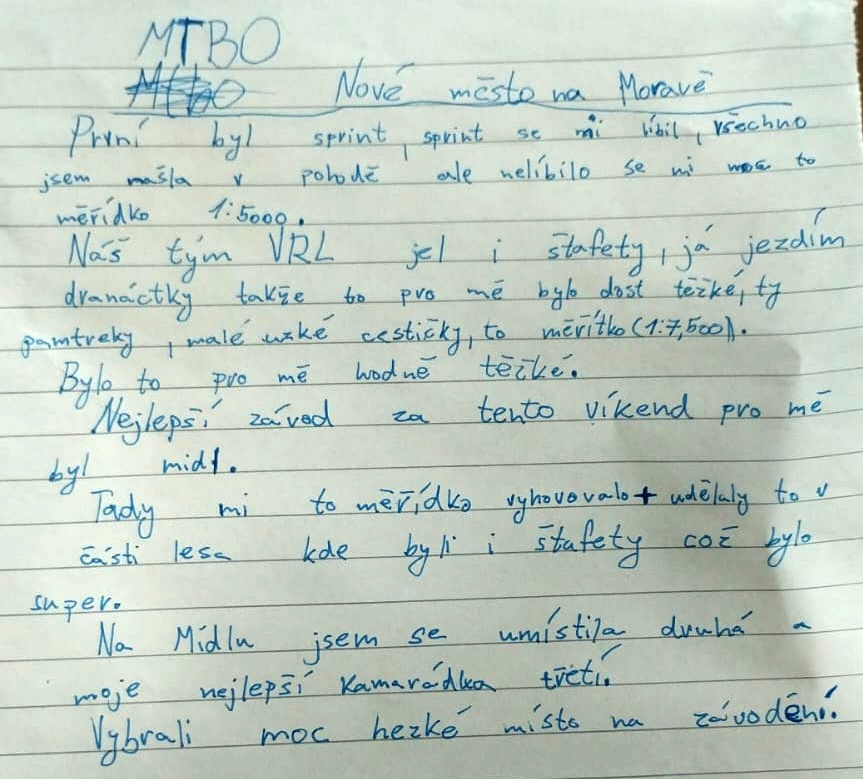 MTBO
Nové město na Moravě
První byl sprint, sprint se mi líbil, všechno
jsem našla v pohodě ale nelíbilo se mi moc to
měřídko 1:5000.
Náš tým VRL jel i štafety, já jezdím
dvanáctky takže to pro mě bylo dost těžké, ty
pamtreky, malé uzké cestičky, to měřítko (1:7,500).
Bylo to pro mě hodně těžké.
Nejlepší závod za tento víkend pro mě
byl midl.
Tady mi to měřídko vyhovovalo + udělaly to v
části lesa kde byli i štafety což bylo
super.
Na Midlu jsem se umístila druhá a
moje nejlepší kamarádka třetí.
Vybrali moc hezké místo na závodění.